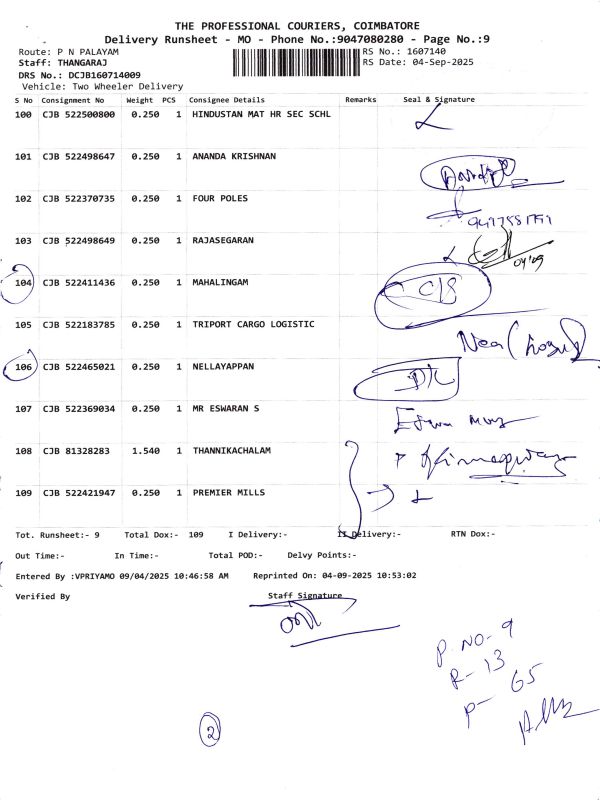 THE PROFESSIONAL COURIERS, COIMBATORE
Delivery Runsheet - MO - Phone No.:9047080280 - Page No.:9
Route: P N PALAYAM RS No.: 1607140
Staff: THANGARAJ RS Date: 04-Sep-2025
DRS No.: DCJB160714009
Vehicle: Two Wheeler Delivery
S No Consignment No Weight PCS Consignee Details Remarks Seal & Signature
100 CJB 522500800 0.250 1 HINDUSTAN MAT HR SEC SCHL
101 CJB 522498647 0.250 1 ANANDA KRISHNAN
102 CJB 522370735 0.250 1 FOUR POLES
103 CJB 522498649 0.250 1 RAJASEGARAN
04/09
104 CJB 522411436 0.250 1 MAHALINGAM
105 CJB 522183785 0.250 1 TRIPORT CARGO LOGISTIC
106 CJB 522465021 0.250 1 NELLAYAPPAN
D/L
107 CJB 522369034 0.250 1 MR ESWARAN S
108 CJB 81328283 1.540 1 THANNIKACHALAM
109 CJB 522421947 0.250 1 PREMIER MILLS
Tot. Runsheet:- 9 Total Dox:- 109 I Delivery:- II Delivery:- RTN Dox:-
Out Time:- In Time:- Total POD:- Delvy Points:-
Entered By :VPRIYAMO 09/04/2025 10:46:58 AM Reprinted On: 04-09-2025 10:53:02
Verified By Staff Signature
P. NO- 9
R- 13
P- 65
2